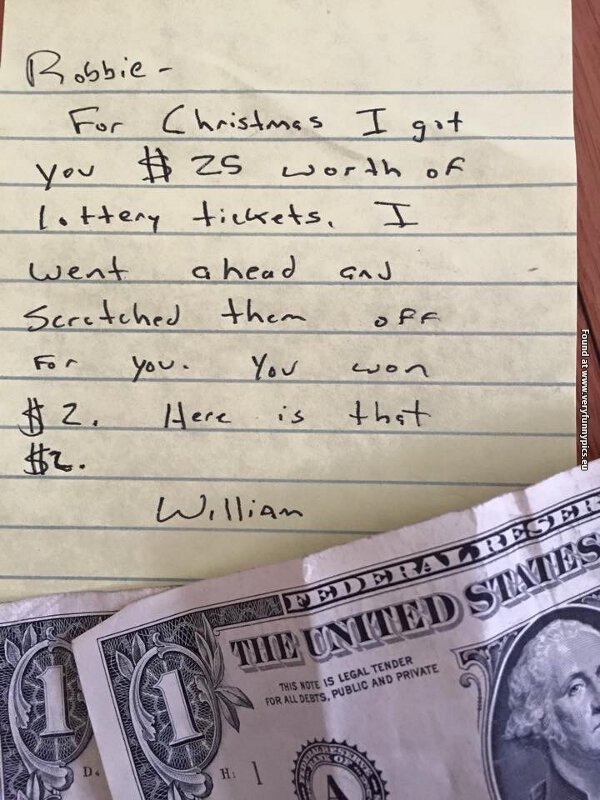 Robbie -
For Christmas I got
you $25 worth of
lottery tickets. I
went ahead and
Scratched them off
for you. You won
$2. Here is that
$2.
William
FEDERAL RESER
THE UNITED STATES
THIS NOTE IS LEGAL TENDER
FOR ALL DEBTS, PUBLIC AND PRIVATE
1
1
D
H: 1
A
Found at www.veryfunnypics.eu